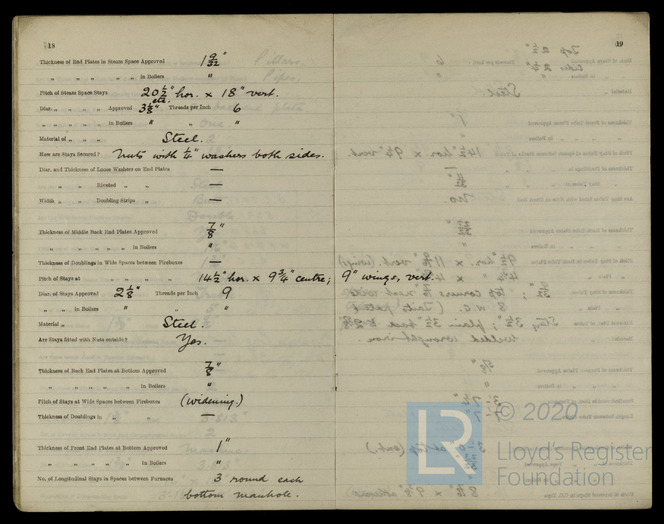 18
Thickness of End Plates in Steam Space Approved 1 9/32"
" " " " " in Boilers "
Pitch of Steam Space Stays 20 1/2" hor. x 18" vert.
etc.
Diar. " " " " Approved 3 1/8" Threads per Inch 6
" " " " in Boilers " " "
Material of " " " Steel.
How are Stays Secured? Nuts with 1/4" washers both sides.
Diar. and Thickness of Loose Washers on End Plates —
" " Riveted " " " —
Width " " Doubling Strips " " —
Thickness of Middle Back End Plates Approved 7/8"
" " " " " in Boilers "
Thickness of Doublings in Wide Spaces between Fireboxes —
Pitch of Stays at " " " " 14 1/2" hor. x 9 3/4" centre; 9" wings, vert.
Diar. of Stays Approved 2 1/8" Threads per Inch 9
" " in Boilers " " "
Material " Steel.
Are Stays fitted with Nuts outside? Yes.
Thickness of Back End Plates at Bottom Approved 7/8"
" " " " " in Boilers "
Pitch of Stays at Wide Spaces between Fireboxes (widening.)
Thickness of Doublings in " " —
Thickness of Front End Plates at Bottom Approved 1"
" " " " " in Boilers "
No. of Longitudinal Stays in Spaces between Furnaces 3 round each
bottom manhole.
19
LR © 2020
Lloyd's Register
Foundation